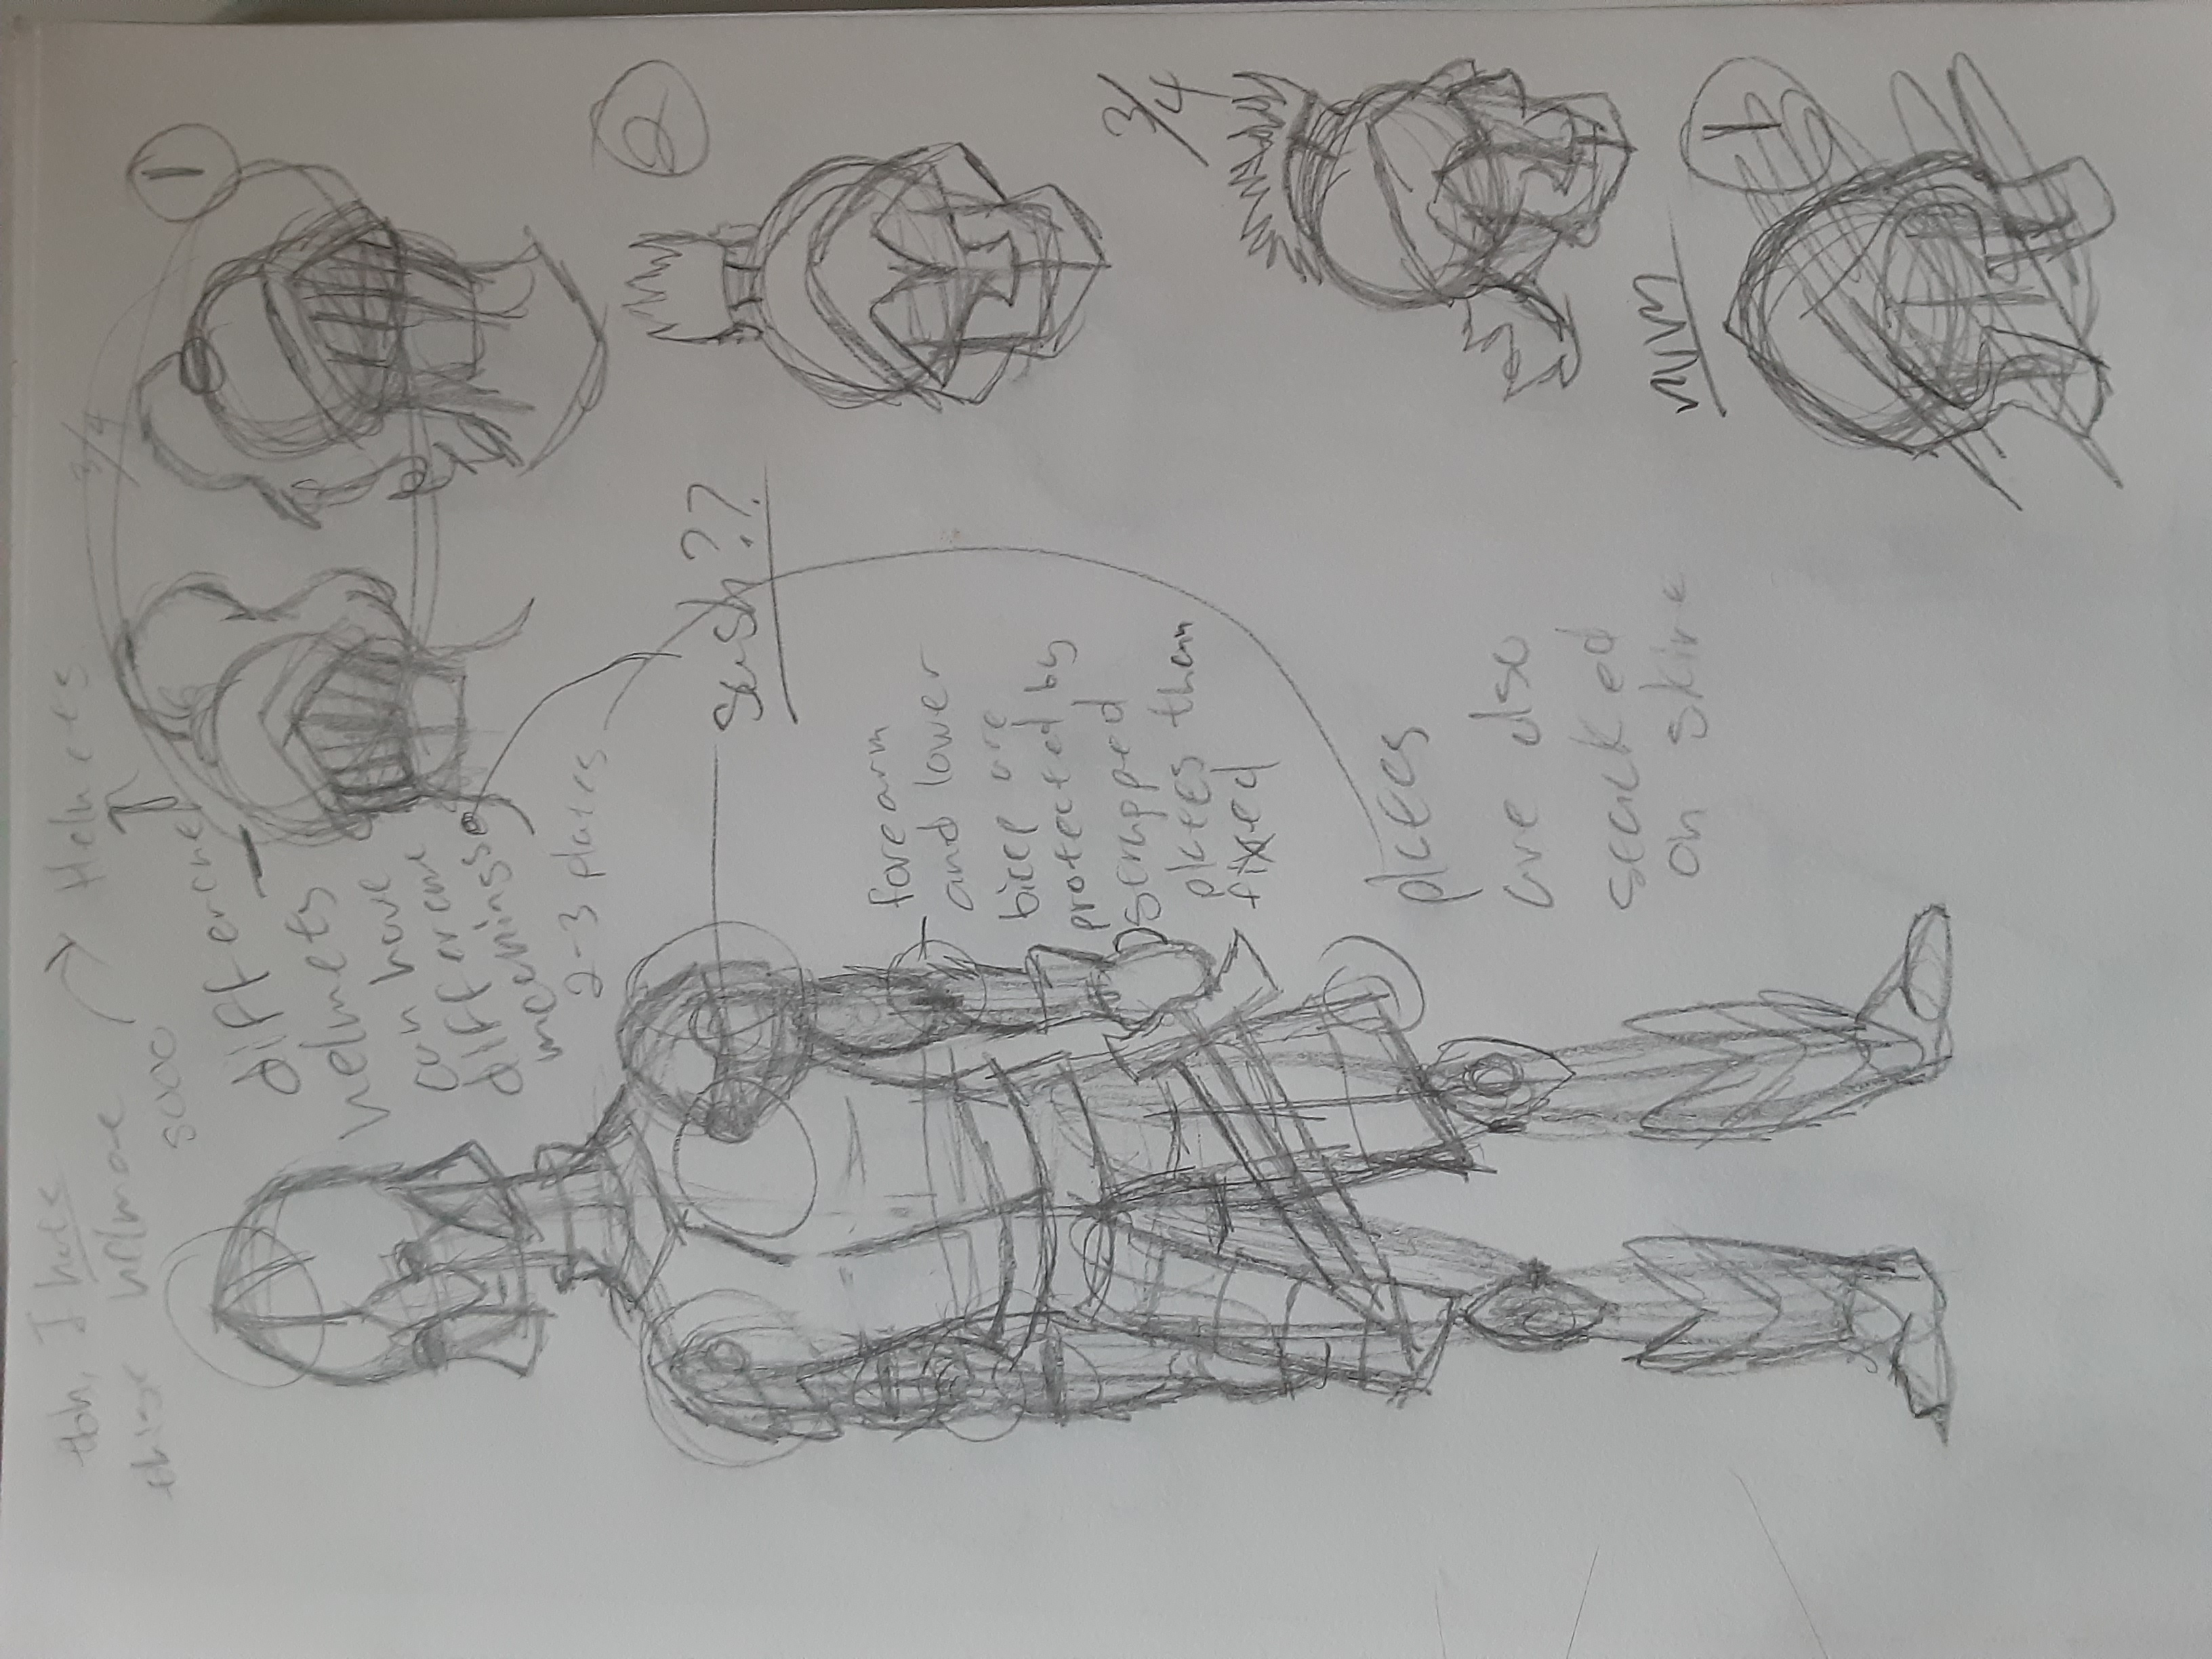 tbh, I hate
this helmet
sooo
Helmets
3/4
1
different
helmets
can have
different
meanings
2-3 plates
2
sash??
forearm
and lower
bicep are
protected by
strapped
plates than
fixed
3/4
plates
are also
stacked
on skirt
1